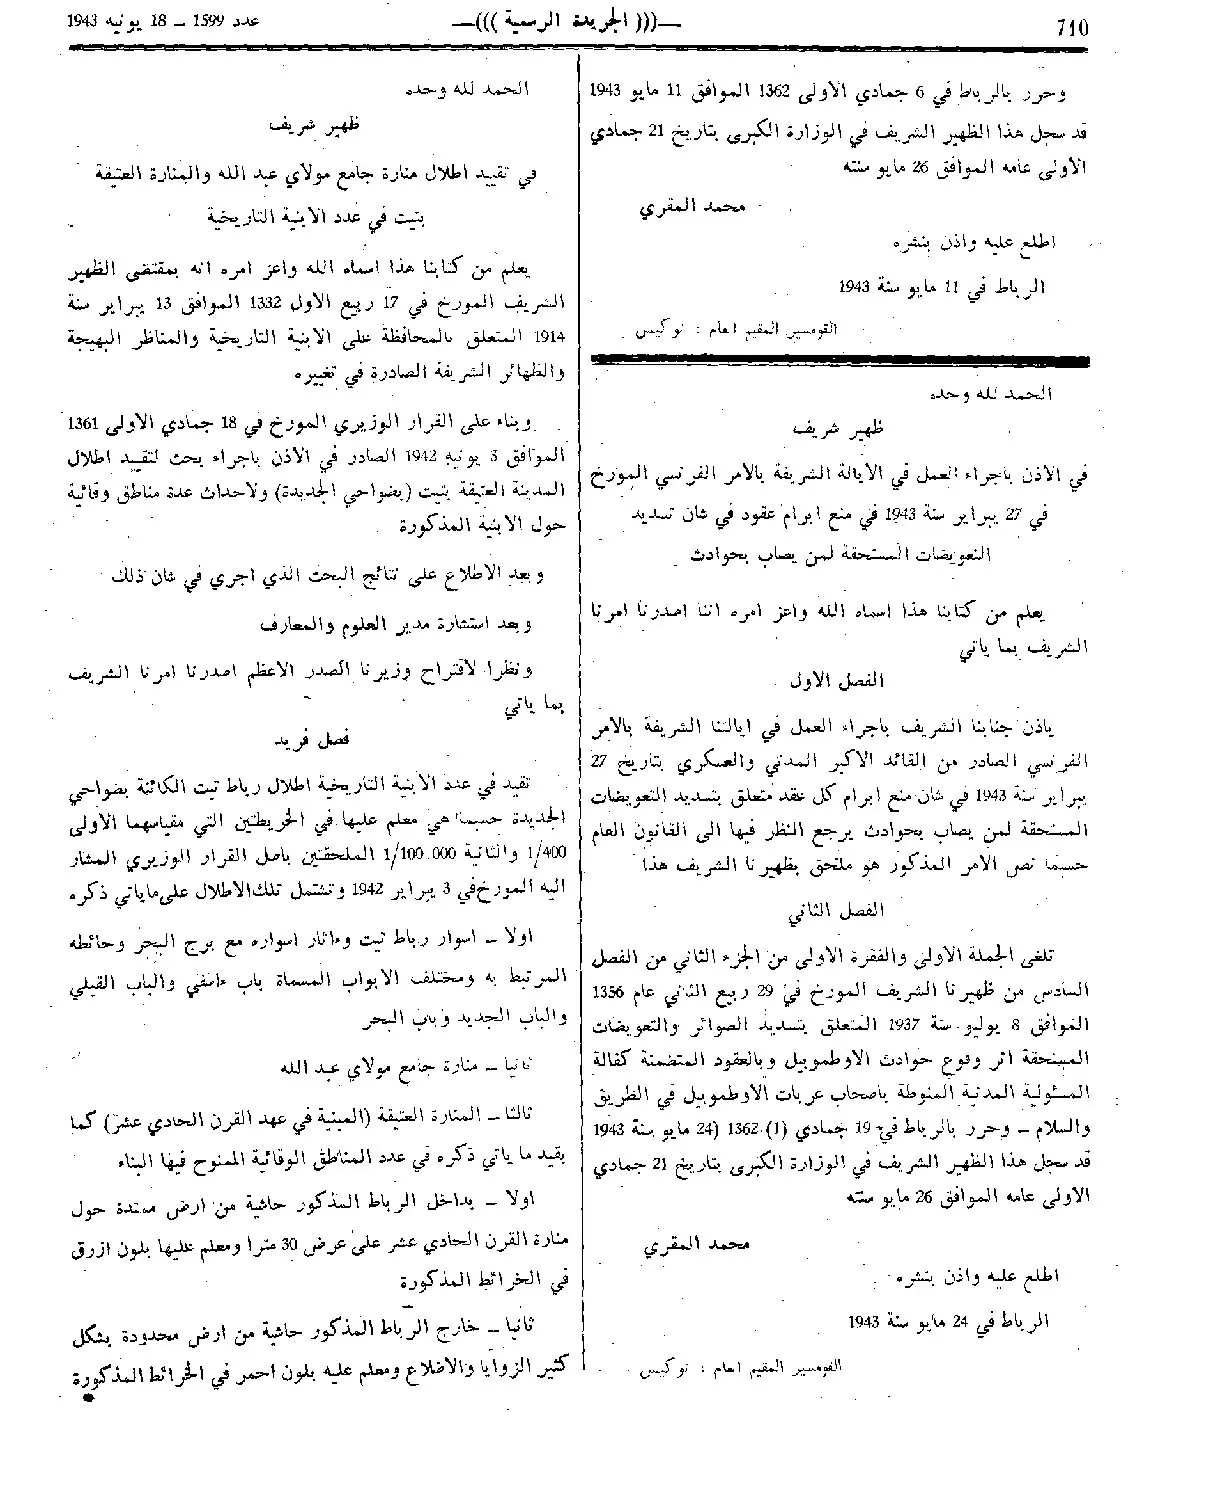 710
—((( الجريدة الرسمية )))—
عدد 1599 — 18 يونيه 1943
وحرر بالرباط في 6 جمادي الاولى 1362 الموافق 11 مايو 1943
قد سجل هذا الظهير الشريف في الوزارة الكبرى بتاريخ 21 جمادي
الاولى عامه الموافق 26 مايو سنته
محمد المقري
اطلع عليه واذن بنشره
الرباط في 11 مايو سنة 1943
القومسير المقيم العام : نوكيس
الحمد لله وحده
ظهير شريف
في الاذن باجراء العمل في الايالة الشريفة بالامر الفرنسي المورخ
في 27 يبراير سنة 1943 في منع ابرام عقود في شان تسديد
التعويضات المستحقة لمن يصاب بحوادث
يعلم من كتابنا هذا اسماه الله واعز امره اننا اصدرنا امرنا
الشريف بما ياتي
الفصل الاول
ياذن جنابنا الشريف باجراء العمل في ايالتنا الشريفة بالامر
الفرنسي الصادر من القائد الاكبر المدني والعسكري بتاريخ 27
يبراير سنة 1943 في شان منع ابرام كل عقد متعلق بتسديد التعويضات
المستحقة لمن يصاب بحوادث يرجع النظر فيها الى القانون العام
حسبما نص الامر المذكور هو ملحق بظهيرنا الشريف هذا
الفصل الثاني
تلغى الجملة الاولى والفقرة الاولى من الجزء الثاني من الفصل
السادس من ظهيرنا الشريف المورخ في 29 ربيع الثاني عام 1356
الموافق 8 يوليو سنة 1937 المتعلق بتسديد الصوائر والتعويضات
المستحقة اثر وقوع حوادث الاوطموبيل وبالعقود المتضمنة كفالة
المسئولية المدنية المنوطة باصحاب عربات الاوطموبيل في الطريق
والسلام — وحرر بالرباط في 19 جمادي (1) 1362 (24 مايو سنة 1943
قد سجل هذا الظهير الشريف في الوزارة الكبرى بتاريخ 21 جمادي
الاولى عامه الموافق 26 مايو سنته
محمد المقري
اطلع عليه واذن بنشره
الرباط في 24 مايو سنة 1943
القومسير المقيم العام : نوكيس
الحمد لله وحده
ظهير شريف
في تقييد اطلال منارة جامع مولاي عبد الله والمنارة العتيقة
بتيت في عدد الابنية التاريخية
يعلم من كتابنا هذا اسماه الله واعز امره انه بمقتضى الظهير
الشريف المورخ في 17 ربيع الاول 1332 الموافق 13 يبراير سنة
1914 المتعلق بالمحافظة على الابنية التاريخية والمناظر البهيجة
والظهائر الشريفة الصادرة في تغييره
وبناء على القرار الوزيري المورخ في 18 جمادي الاولى 1361
الموافق 3 يونيه 1942 الصادر في الاذن باجراء بحث لتقييد اطلال
المدينة العتيقة بتيت (بضواحي الجديدة) ولاحداث عدة مناطق وقائية
حول الابنية المذكورة
وبعد الاطلاع على نتائج البحث الذي اجري في شان ذلك
وبعد استشارة مدير العلوم والمعارف
ونظرا لاقتراح وزيرنا الصدر الاعظم اصدرنا امرنا الشريف
بما ياتي
فصل فريد
تقيد في عدد الابنية التاريخية اطلال رباط تيت الكائنة بضواحي
الجديدة حسبما هي معلم عليها في الخريطتين التي مقياسهما الاولى
1/400 والثانية 1/100.000 الملحقتين باصل القرار الوزيري المشار
اليه المورخ في 3 يبراير 1942 وتشتمل تلك الاطلال على ماياتي ذكره
اولا — اسوار رباط تيت وءاثار اسواره مع برج البحر وحائطه
المرتبط به ومختلف الابواب المسماة باب ءاسفي والباب القبلي
والباب الجديد وباب البحر
ثانيا — منارة جامع مولاي عبد الله
ثالثا — المنارة العتيقة (المبنية في عهد القرن الحادي عشر) كما
يقيد ما ياتي ذكره في عدد المناطق الوقائية الممنوح فيها البناء
اولا — بداخل الرباط المذكور حاشية من ارض ممتدة حول
منارة القرن الحادي عشر على عرض 30 مترا ومعلم عليها بلون ازرق
في الخرائط المذكورة
ثانيا — خارج الرباط المذكور حاشية من ارض محدودة بشكل
كثير الزوايا والاضلاع ومعلم عليه بلون احمر في الخرائط المذكورة